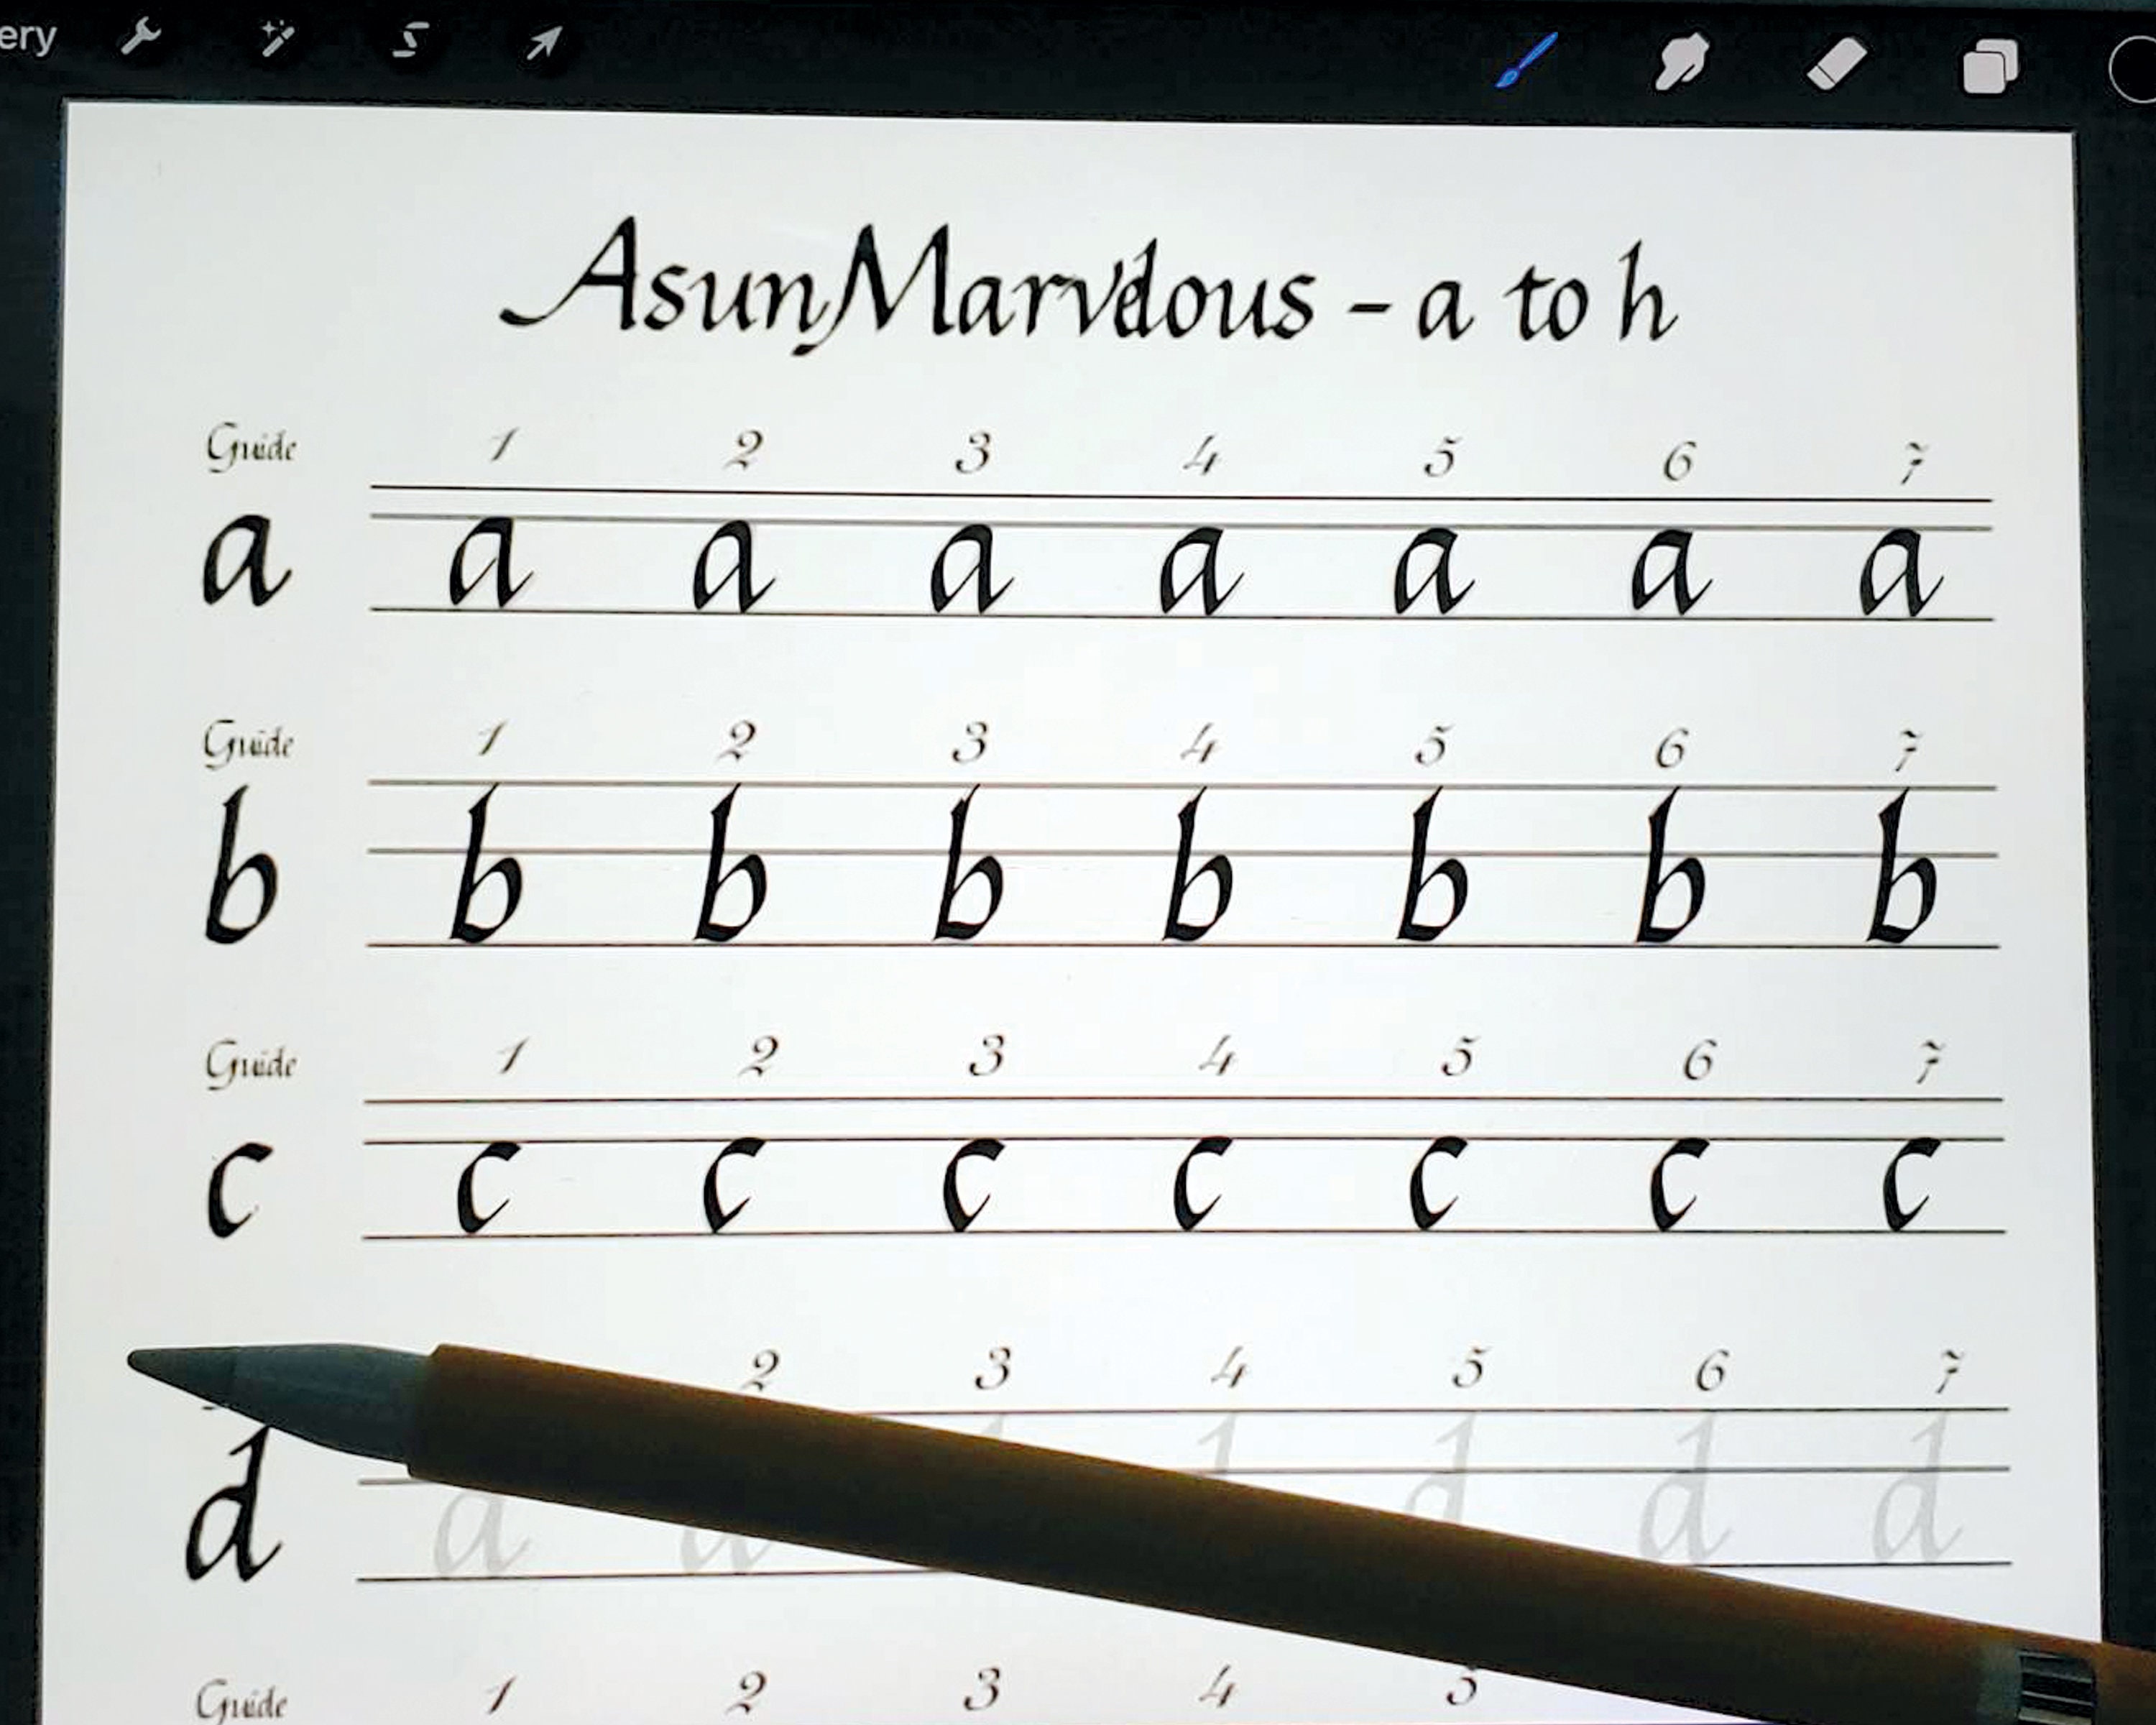 ery
AsunMarvelous - a to h
Guide 1 2 3 4 5 6 7
a a a a a a a a
Guide 1 2 3 4 5 6 7
b b b b b b b b
Guide 1 2 3 4 5 6 7
c c c c c c c c
2 3 4 5 6 7
d d d d d
Guide 1 2 3 4 5